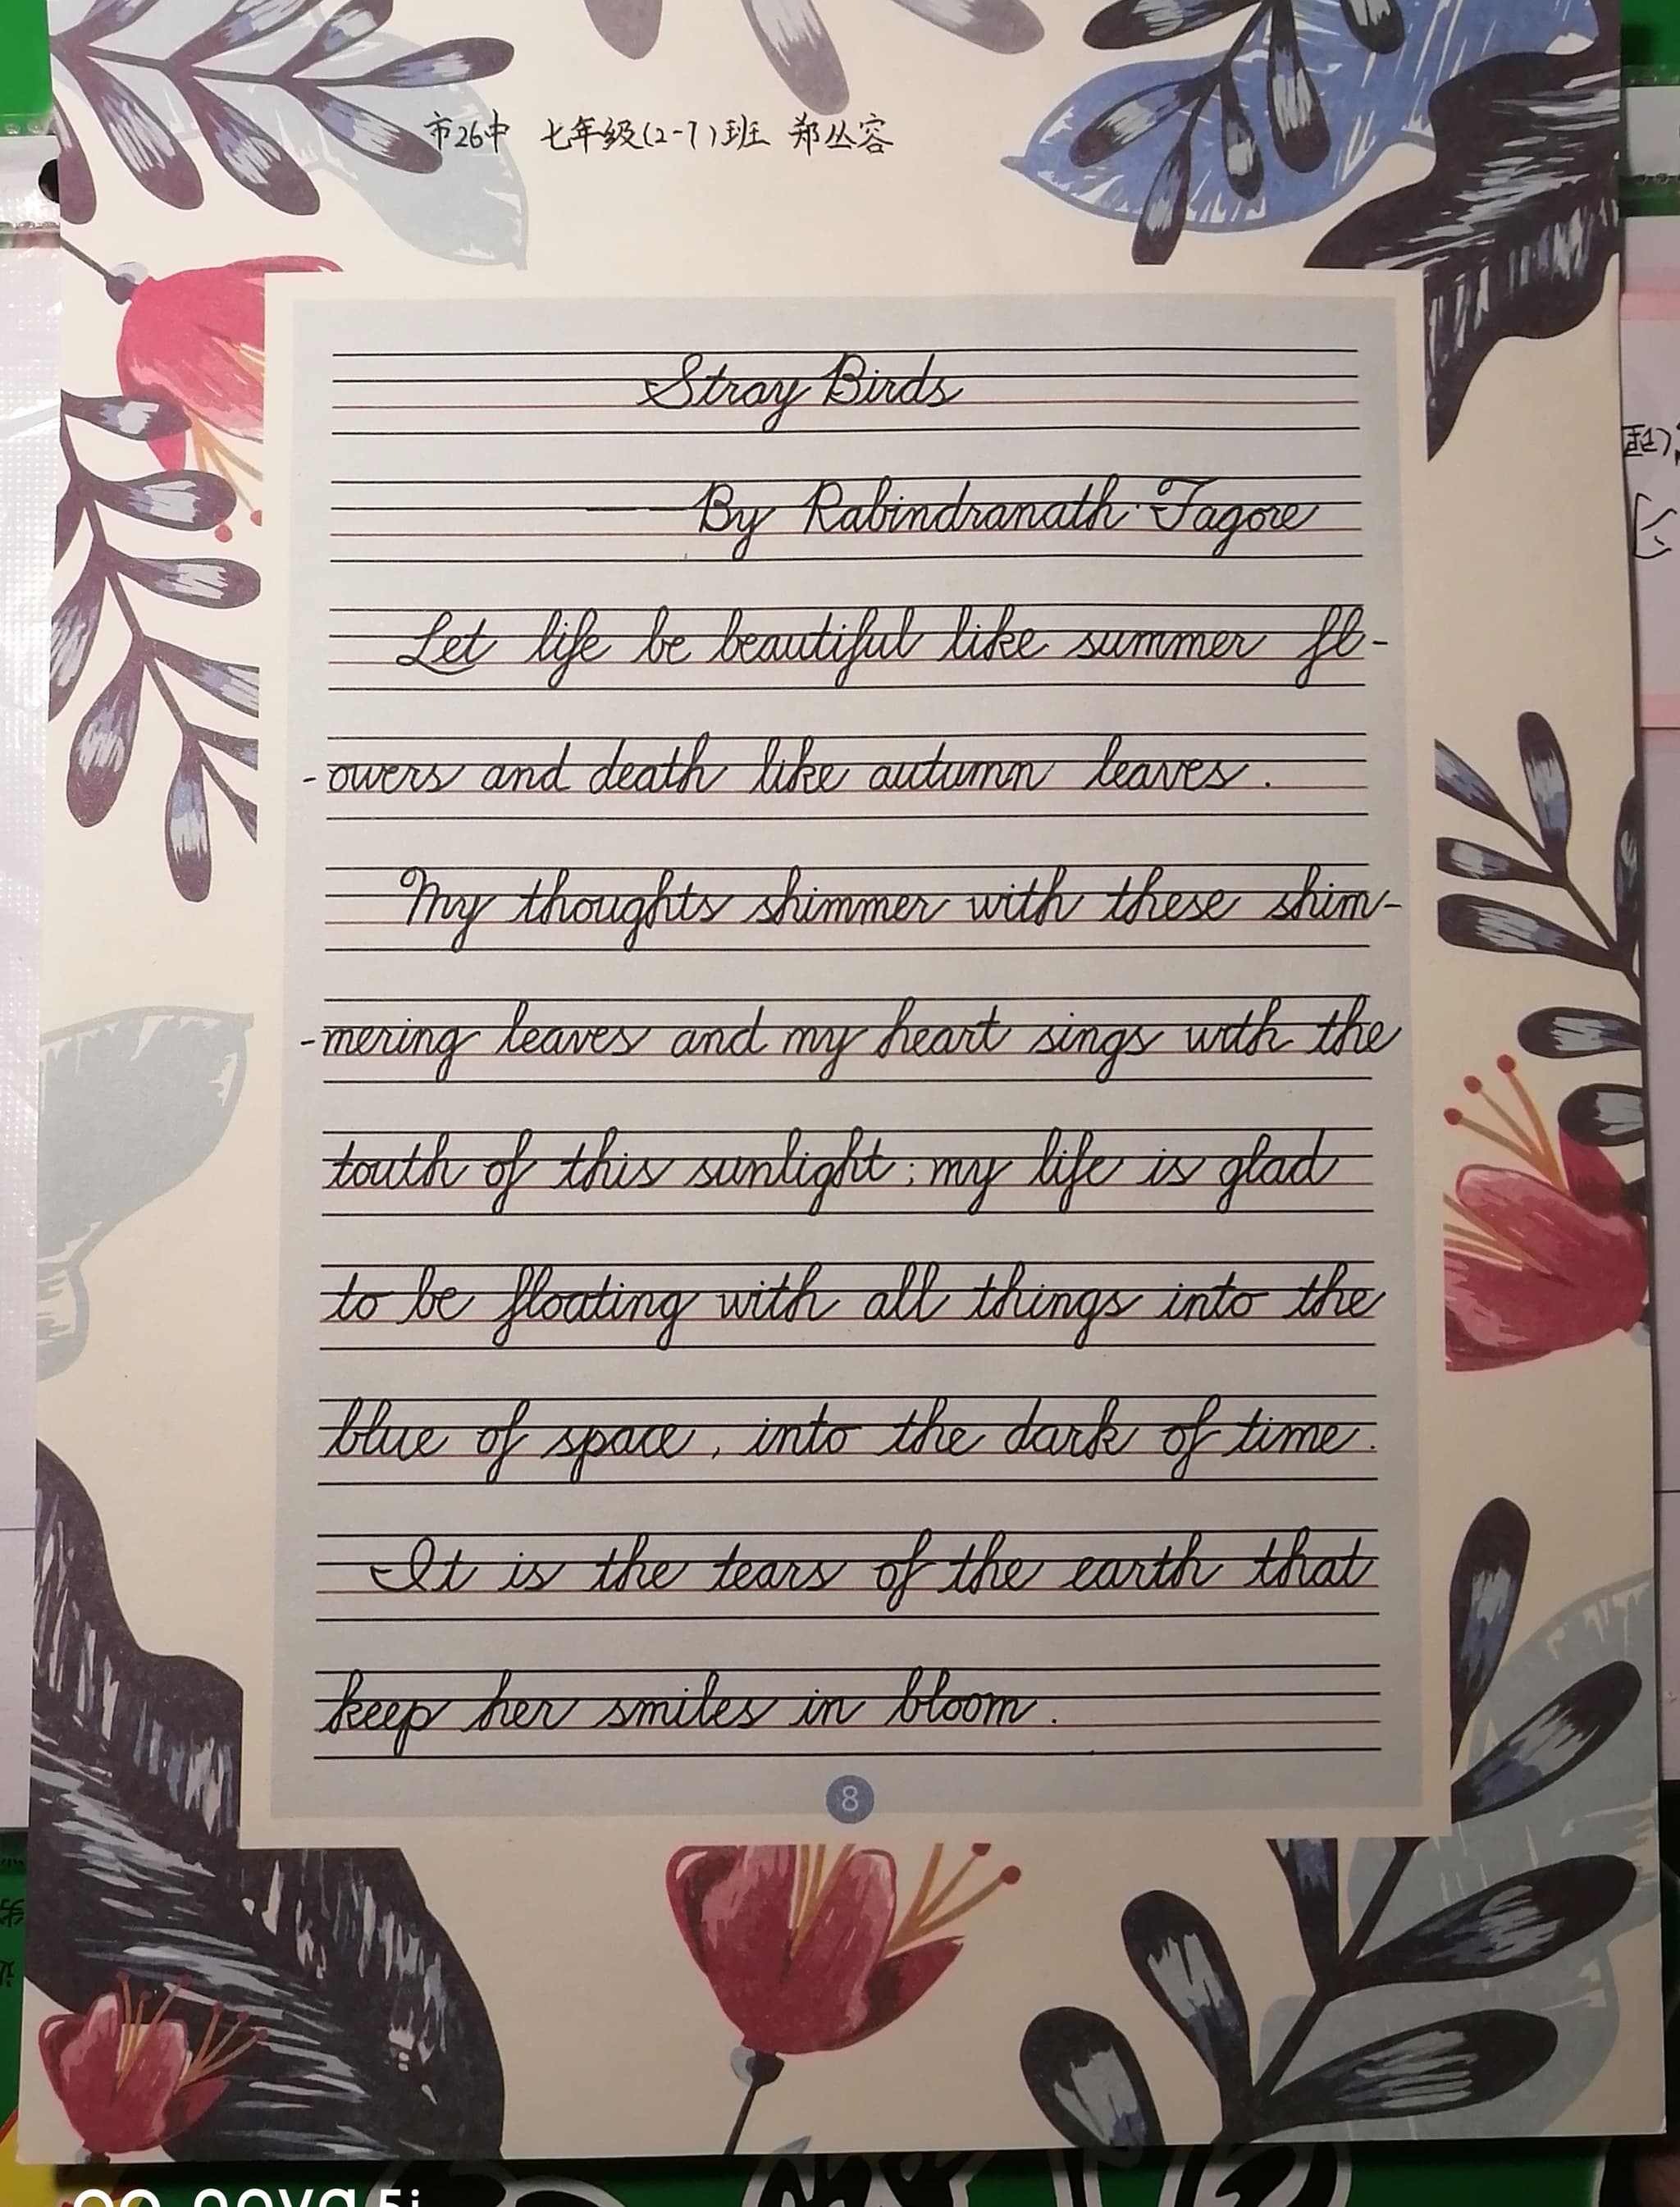 市26中 七年级(2-7)班 郑丛容
Stray Birds
——By Rabindranath·Tagore
Let life be beautiful like summer fl-
-owers and death like autumn leaves.
My thoughts shimmer with these shim-
-mering leaves and my heart sings with the
touth of this sunlight; my life is glad
to be floating with all things into the
blue of space, into the dark of time.
It is the tears of the earth that
keep her smiles in bloom.
8